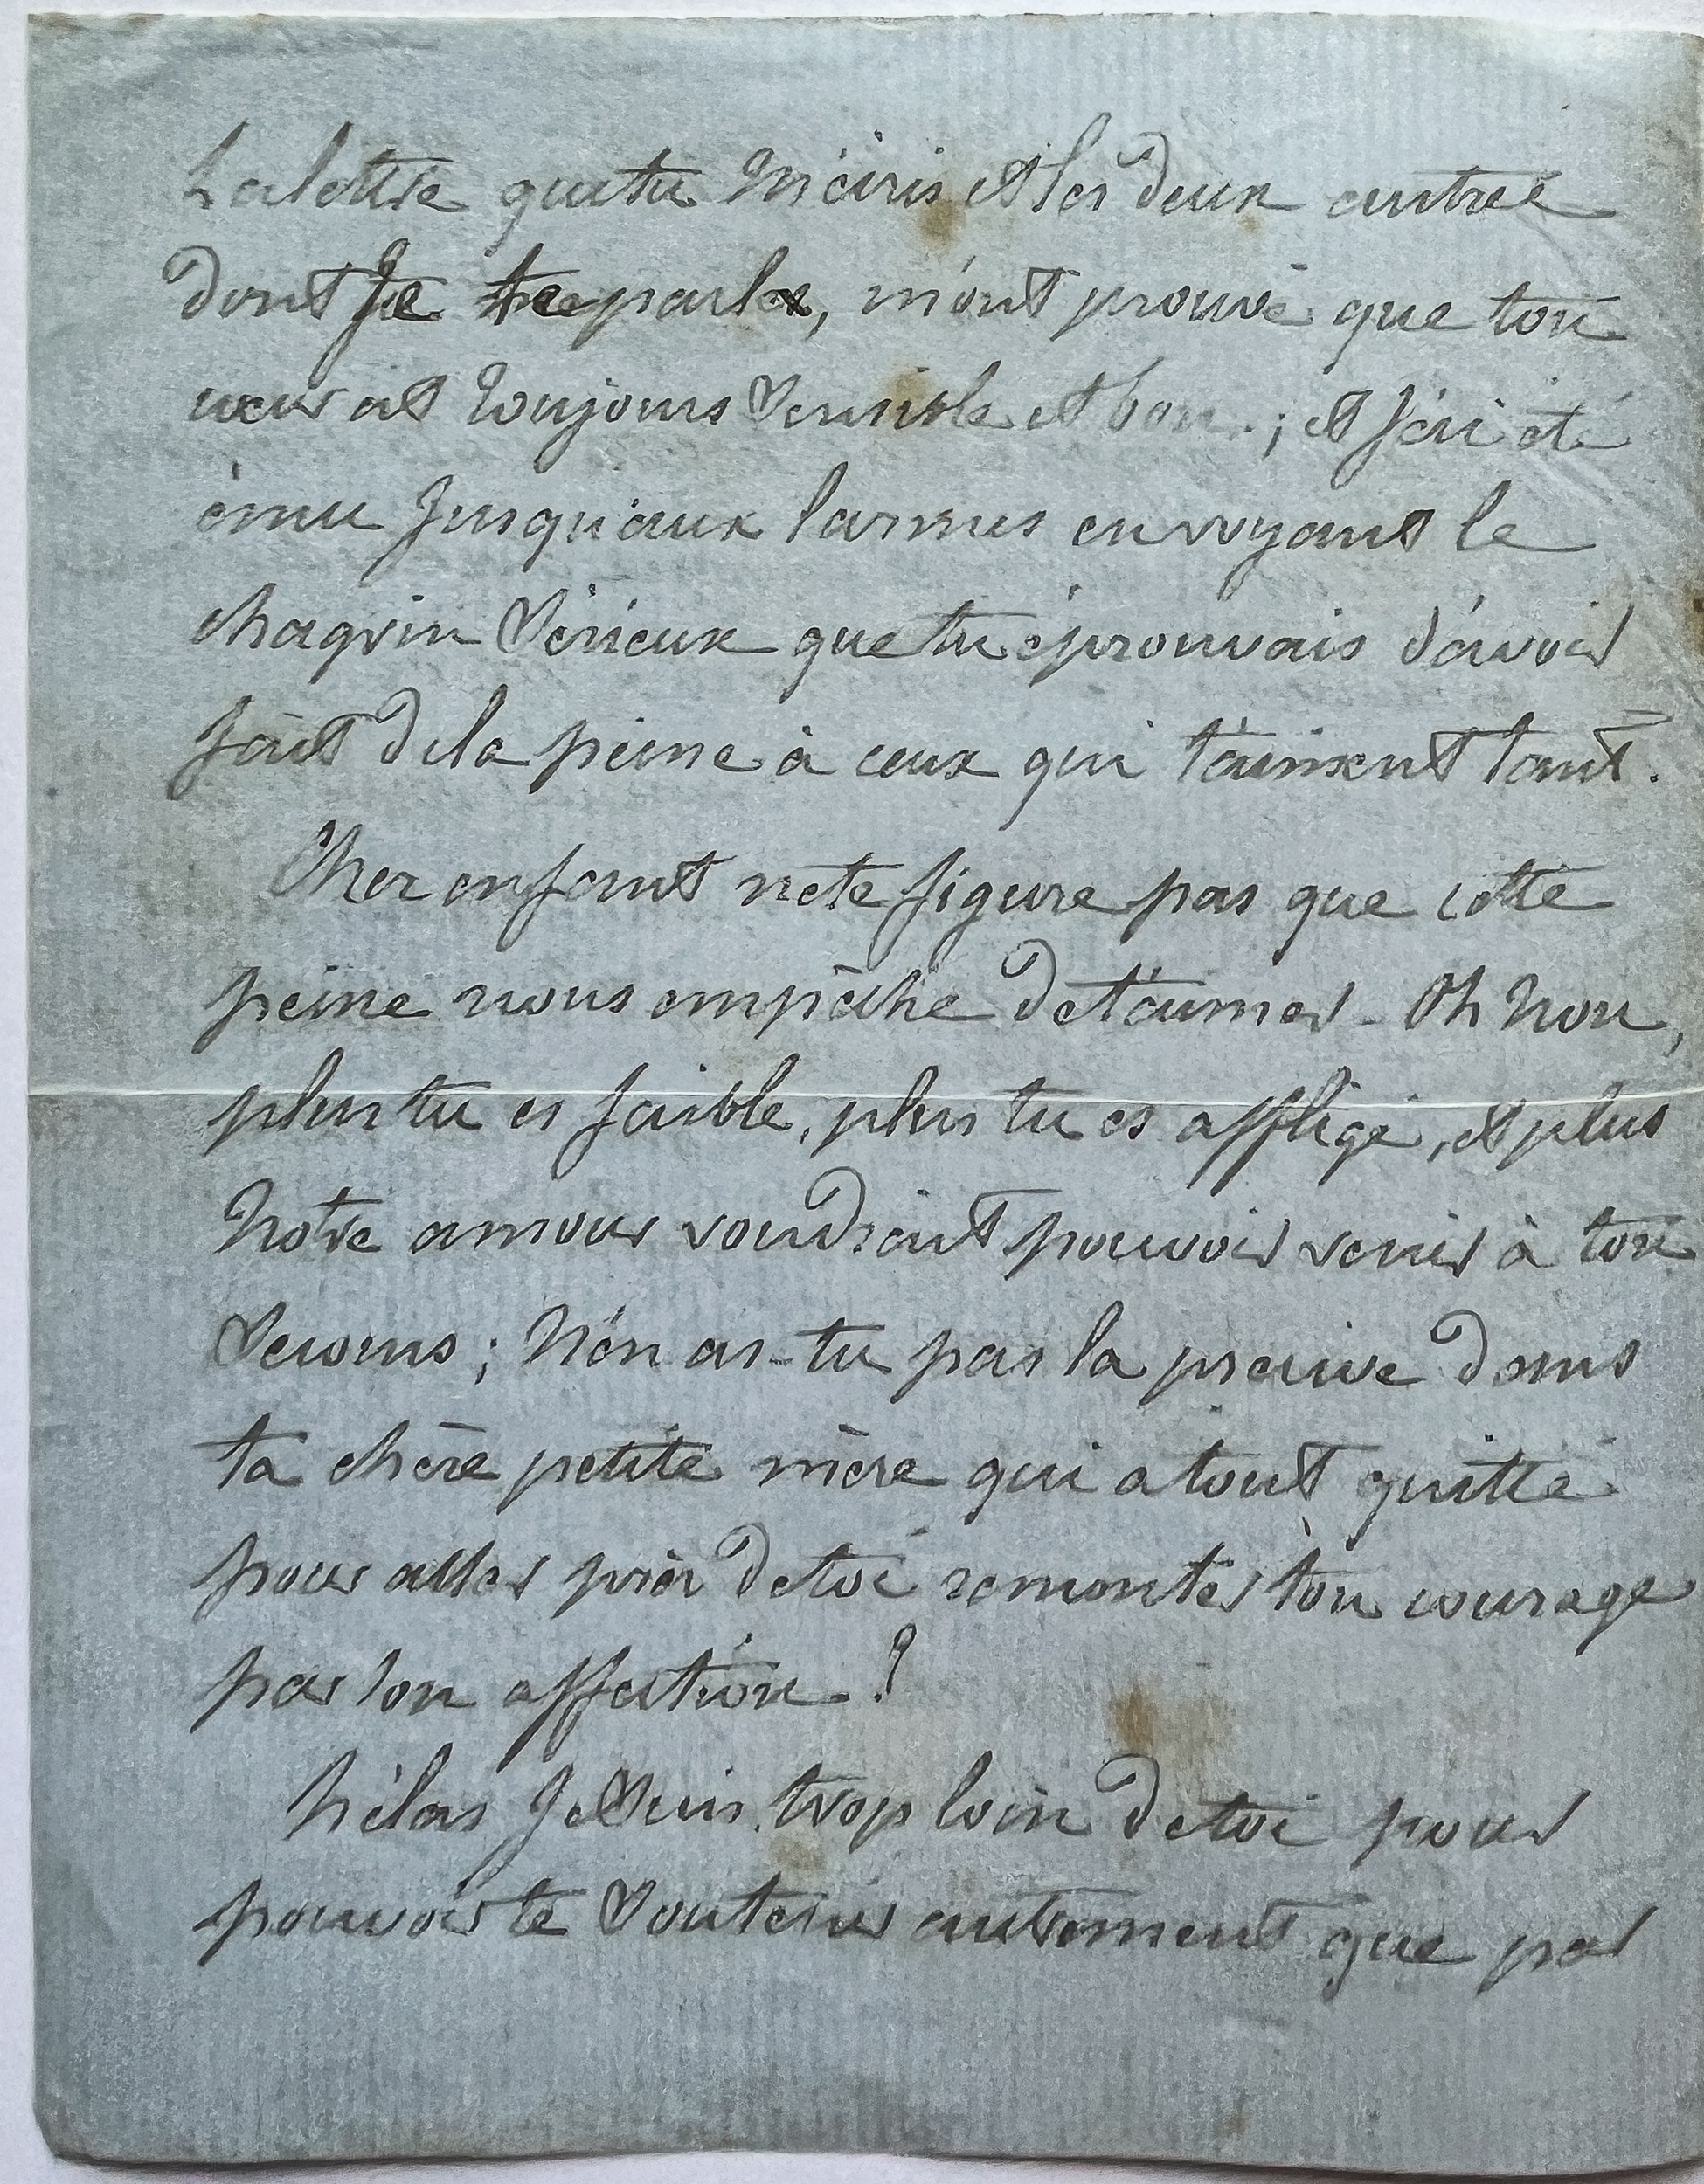 La lettre que tu m'écris et les deux autres
dont Je te parle, m'ont prouvé que ton
cœur est toujours sensible et bon ; et J'ai été
ému Jusqu'aux larmes en voyant le
chagrin sérieux que tu éprouvais d'avoir
fait de la peine à ceux qui t'aiment tant.
Cher enfant ne te figure pas que cette
peine nous empêche de t'aimer - Oh non,
plus tu es faible, plus tu es affligé, et plus
notre amour voudrait pouvoir venir à ton
secours ; N'en as-tu pas la preuve dans
ta chère petite mère qui a tout quitté
pour aller près de toi remonter ton courage
par son affection ?
hélas Je suis trop loin de toi pour
pouvoir te soutenir autrement que par